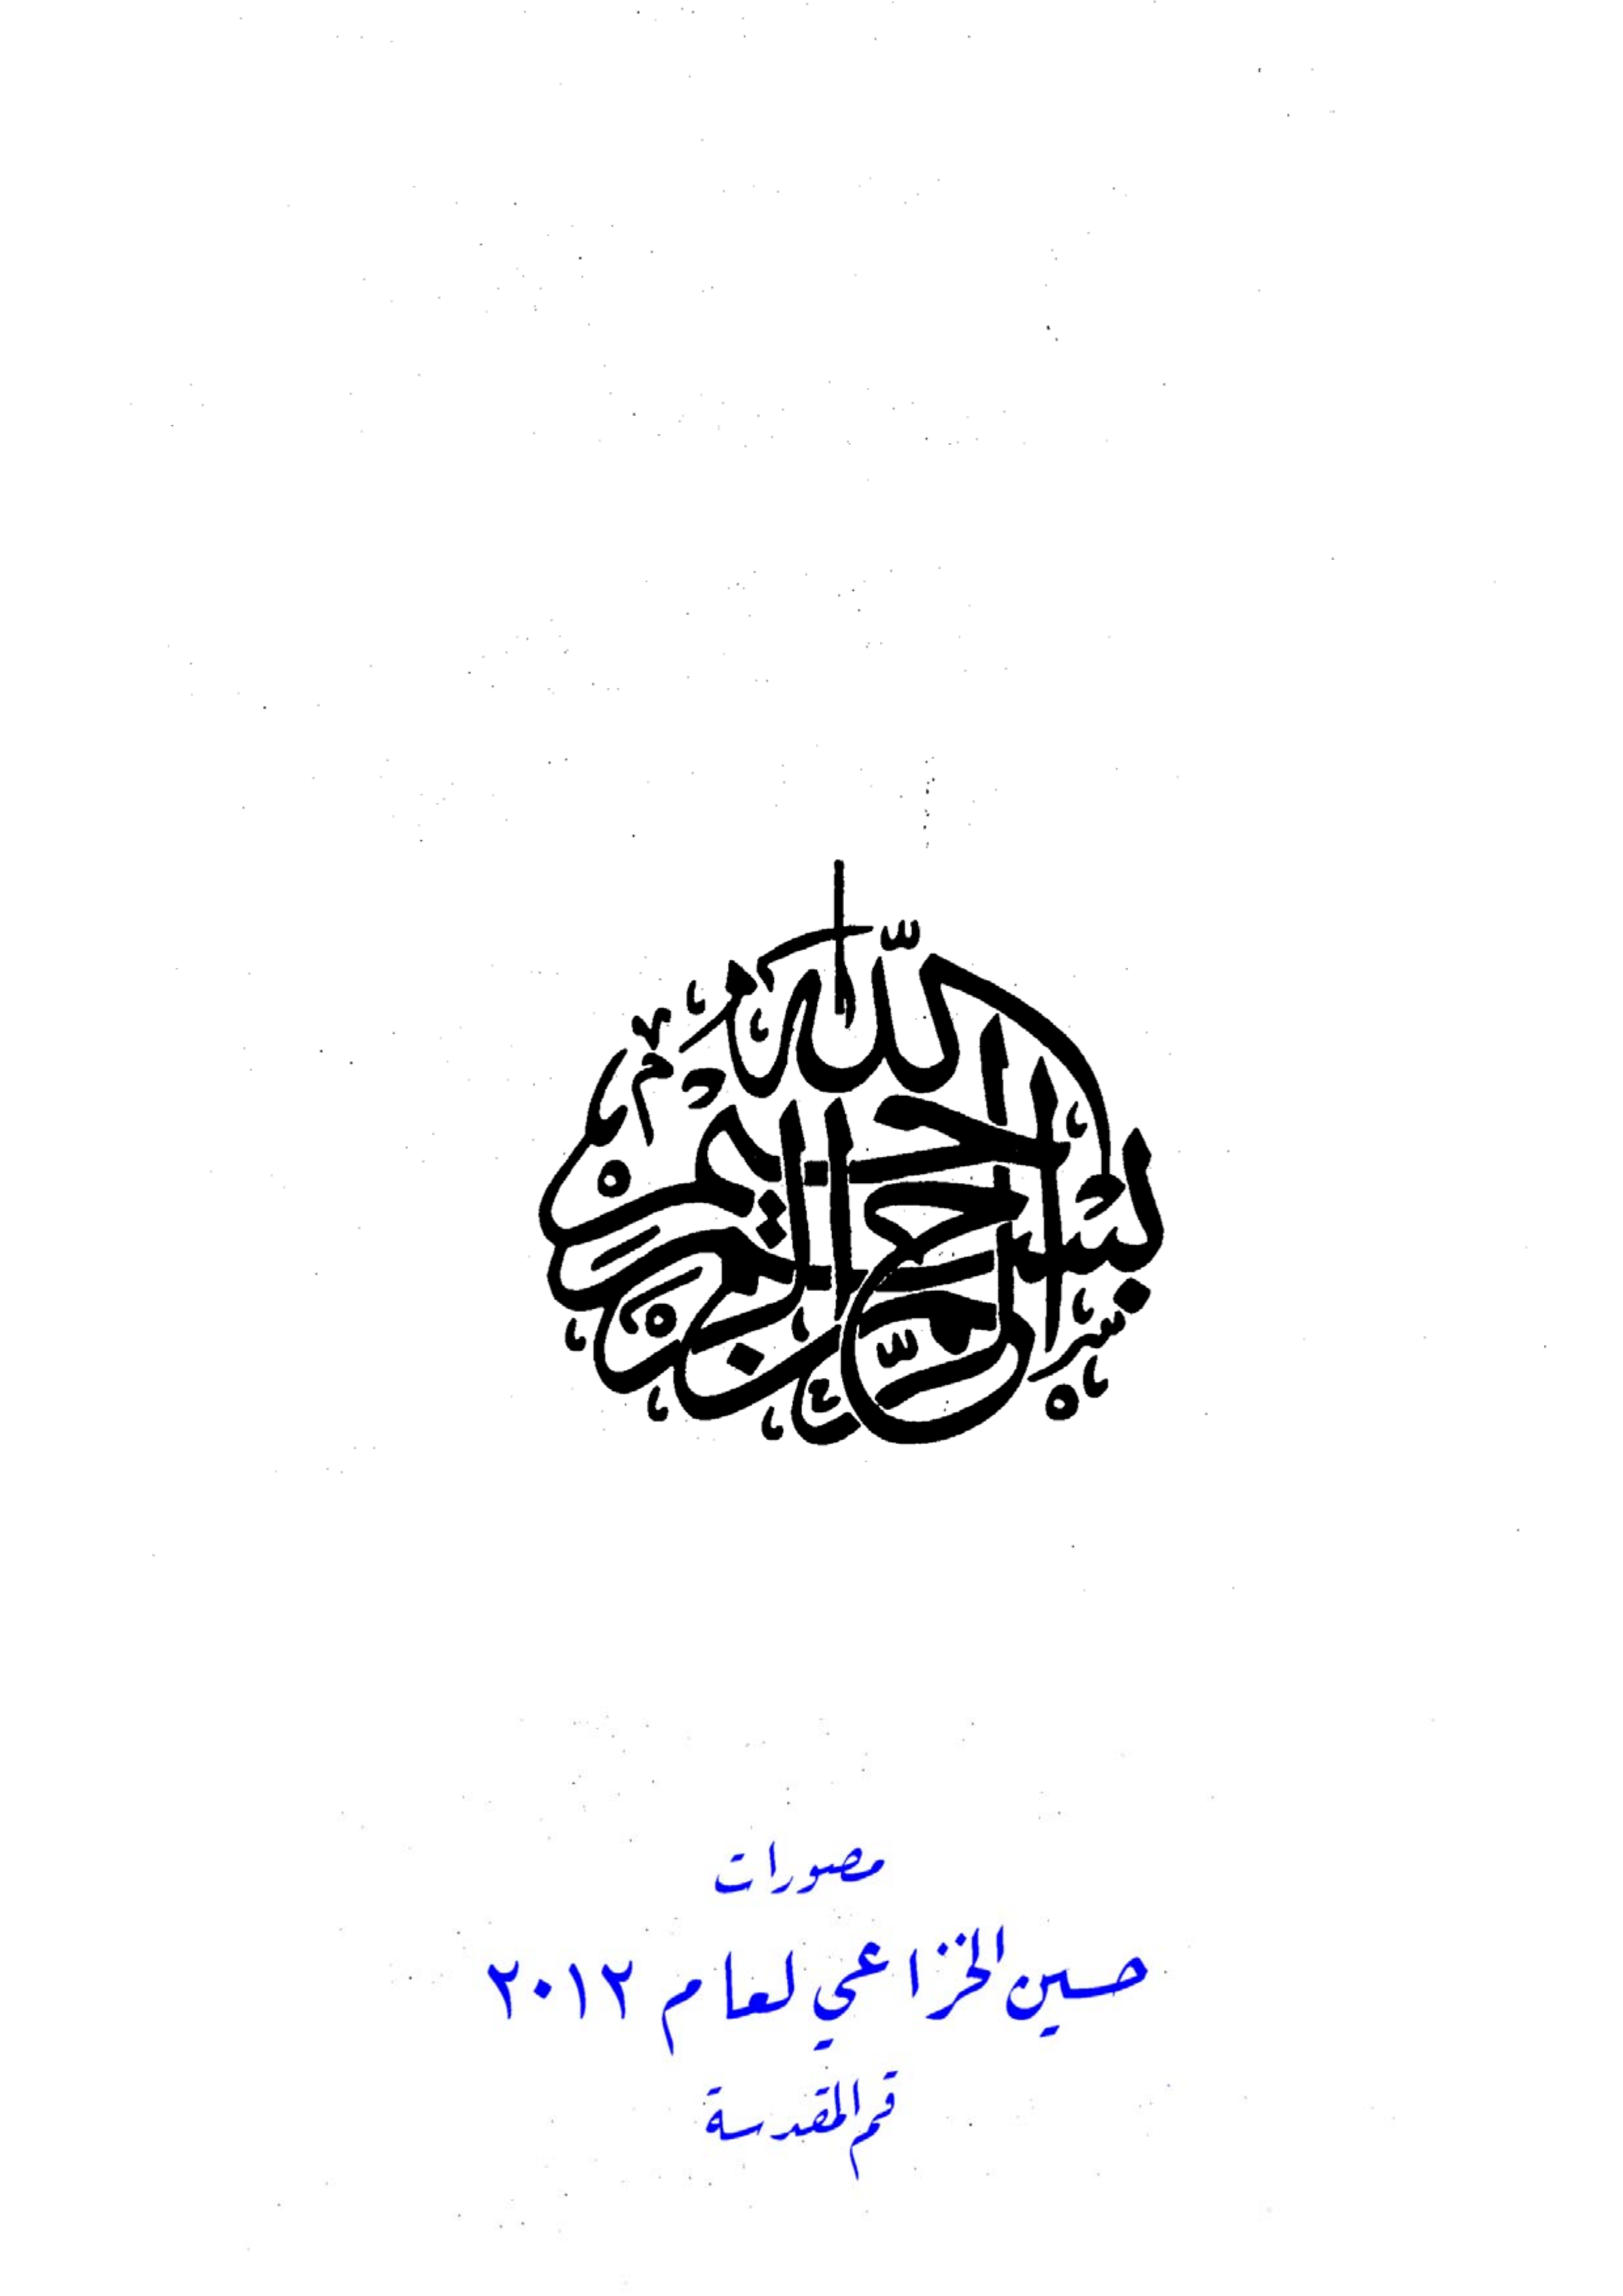 بسم الله الرحمن الرحيم
مصورات
حسين الخزاعي لعام ٢٠١٢
قم المقدسة